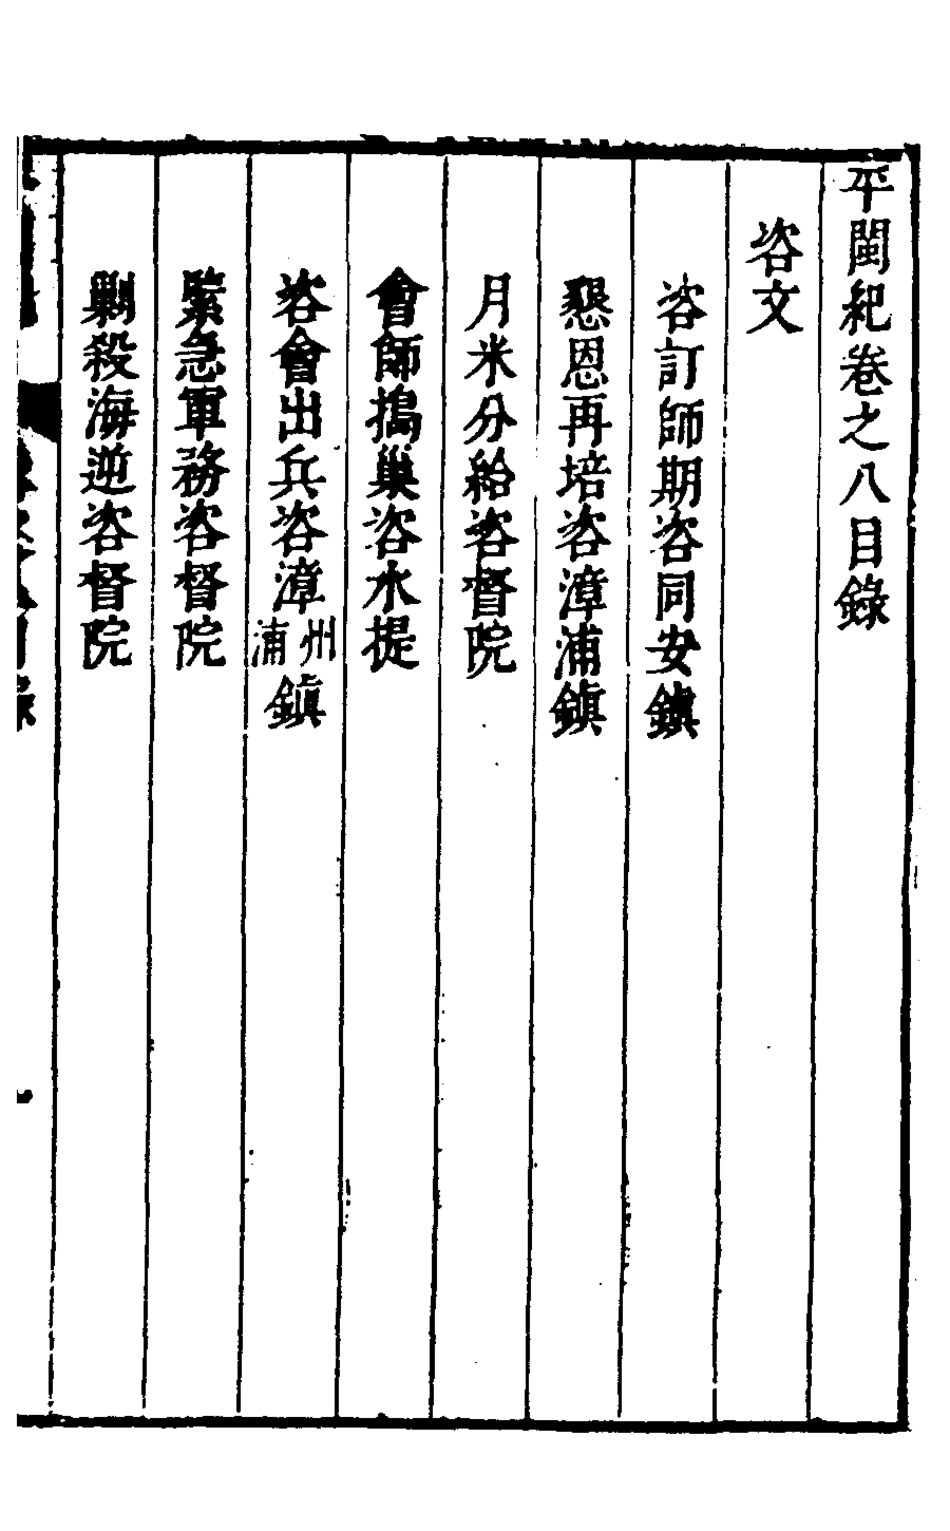 平閩紀卷之八目錄
咨文
咨訂師期咨同安鎮
懇恩再培咨漳浦鎮
月米分給咨督院
會師搗巢咨水提
咨會出兵咨漳州浦鎮
緊急軍務咨督院
剿殺海逆咨督院